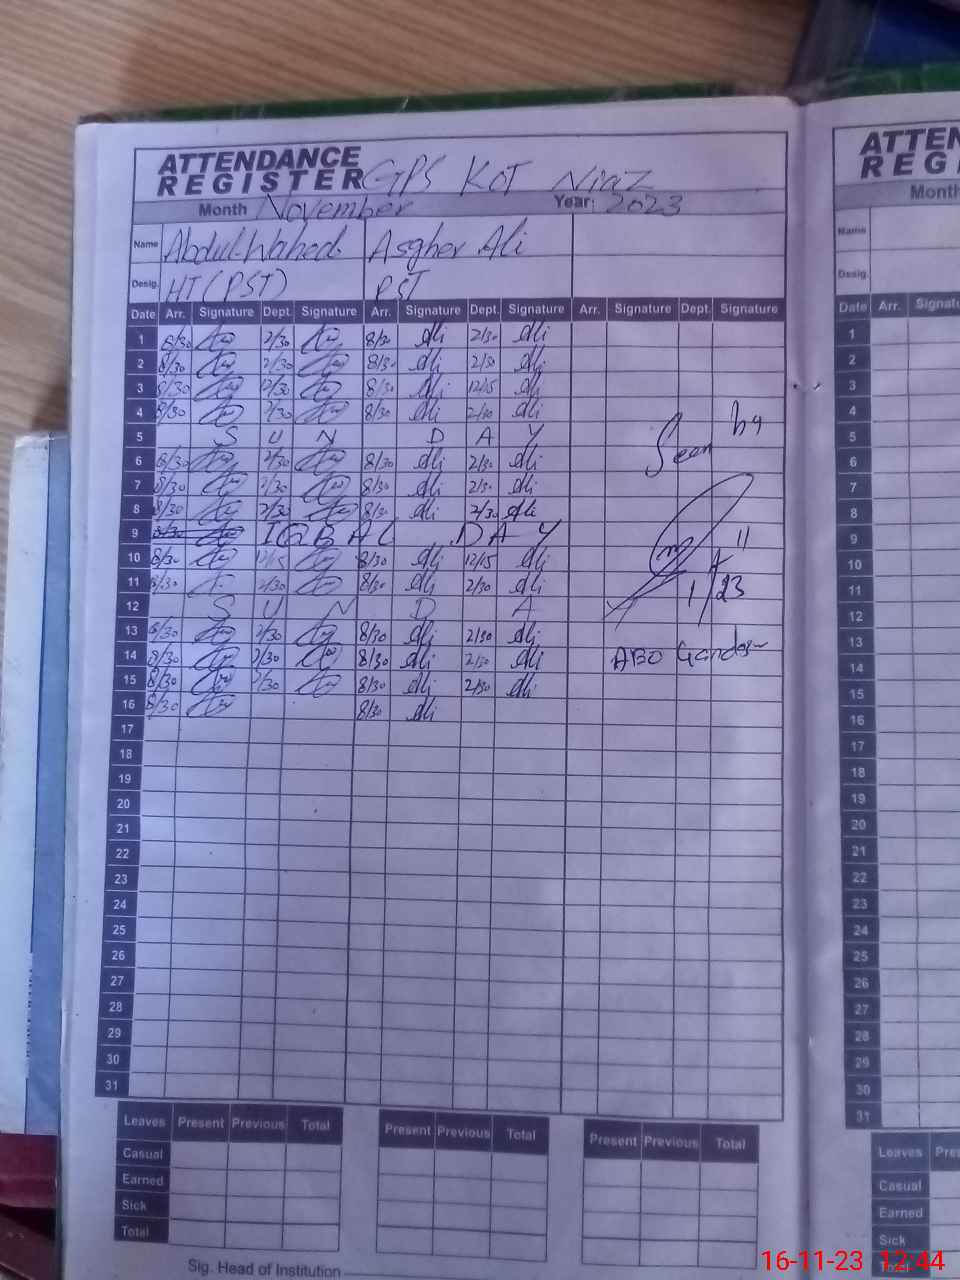 ATTENDANCE
REGISTER GPS KOT Niaz
Month November Year: 2023
Name Abdul Wahed Asgher Ali
Desig. HT (PST) PST
Date Arr. Signature Dept. Signature Arr. Signature Dept. Signature Arr. Signature Dept. Signature
1 8/30 2/30 8/30 Ali 2/30 Ali
2 8/30 2/30 8/30 Ali 2/30 Ali
3 8/30 12/30 8/30 Ali 12/15 Ali
4 8/30 2/30 8/30 Ali 2/30 Ali
5 S U N D A Y
6 8/30 2/30 8/30 Ali 2/30 Ali
7 8/30 2/30 8/30 Ali 2/30 Ali
8 8/30 2/30 8/30 Ali 2/30 Ali
9 8/30 IQBAL DAY
10 8/30 12/15 8/30 Ali 12/15 Ali
11 8/30 2/30 8/30 Ali 2/30 Ali
12 S U N D A
13 8/30 2/30 8/30 Ali 2/30 Ali
14 8/30 2/30 8/30 Ali 2/30 Ali
15 8/30 2/30 8/30 Ali 2/30 Ali
16 8/30 8/30 Ali
17
18
19
20
21
22
23
24
25
26
27
28
29
30
31
Seen by
11
1/23
ABO
Leaves Present Previous Total Present Previous Total Present Previous Total
Casual
Earned
Sick
Total
Sig. Head of Institution
ATTEN
REGI
Month
Name
Desig.
Date Arr. Signatu
1
2
3
4
5
6
7
8
9
10
11
12
13
14
15
16
17
18
19
20
21
22
23
24
25
26
27
28
29
30
31
Leaves Pre
Casual
Earned
Sick
Total
16-11-23 12:44